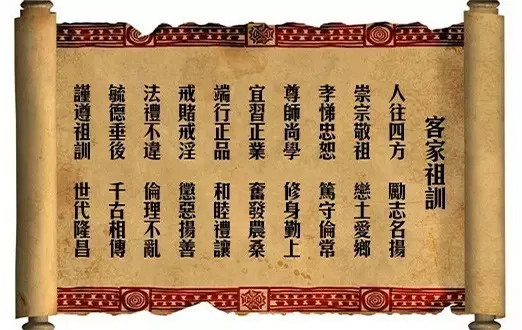 客家祖訓
人往四方 勵志名揚
崇宗敬祖 戀土愛鄉
孝悌忠恕 篤守倫常
尊師尚學 修身勤上
宜習正業 奮發農桑
端行正品 和睦禮讓
戒賭戒淫 懲惡揚善
法禮不違 倫理不亂
毓德垂後 千古相傳
謹遵祖訓 世代隆昌